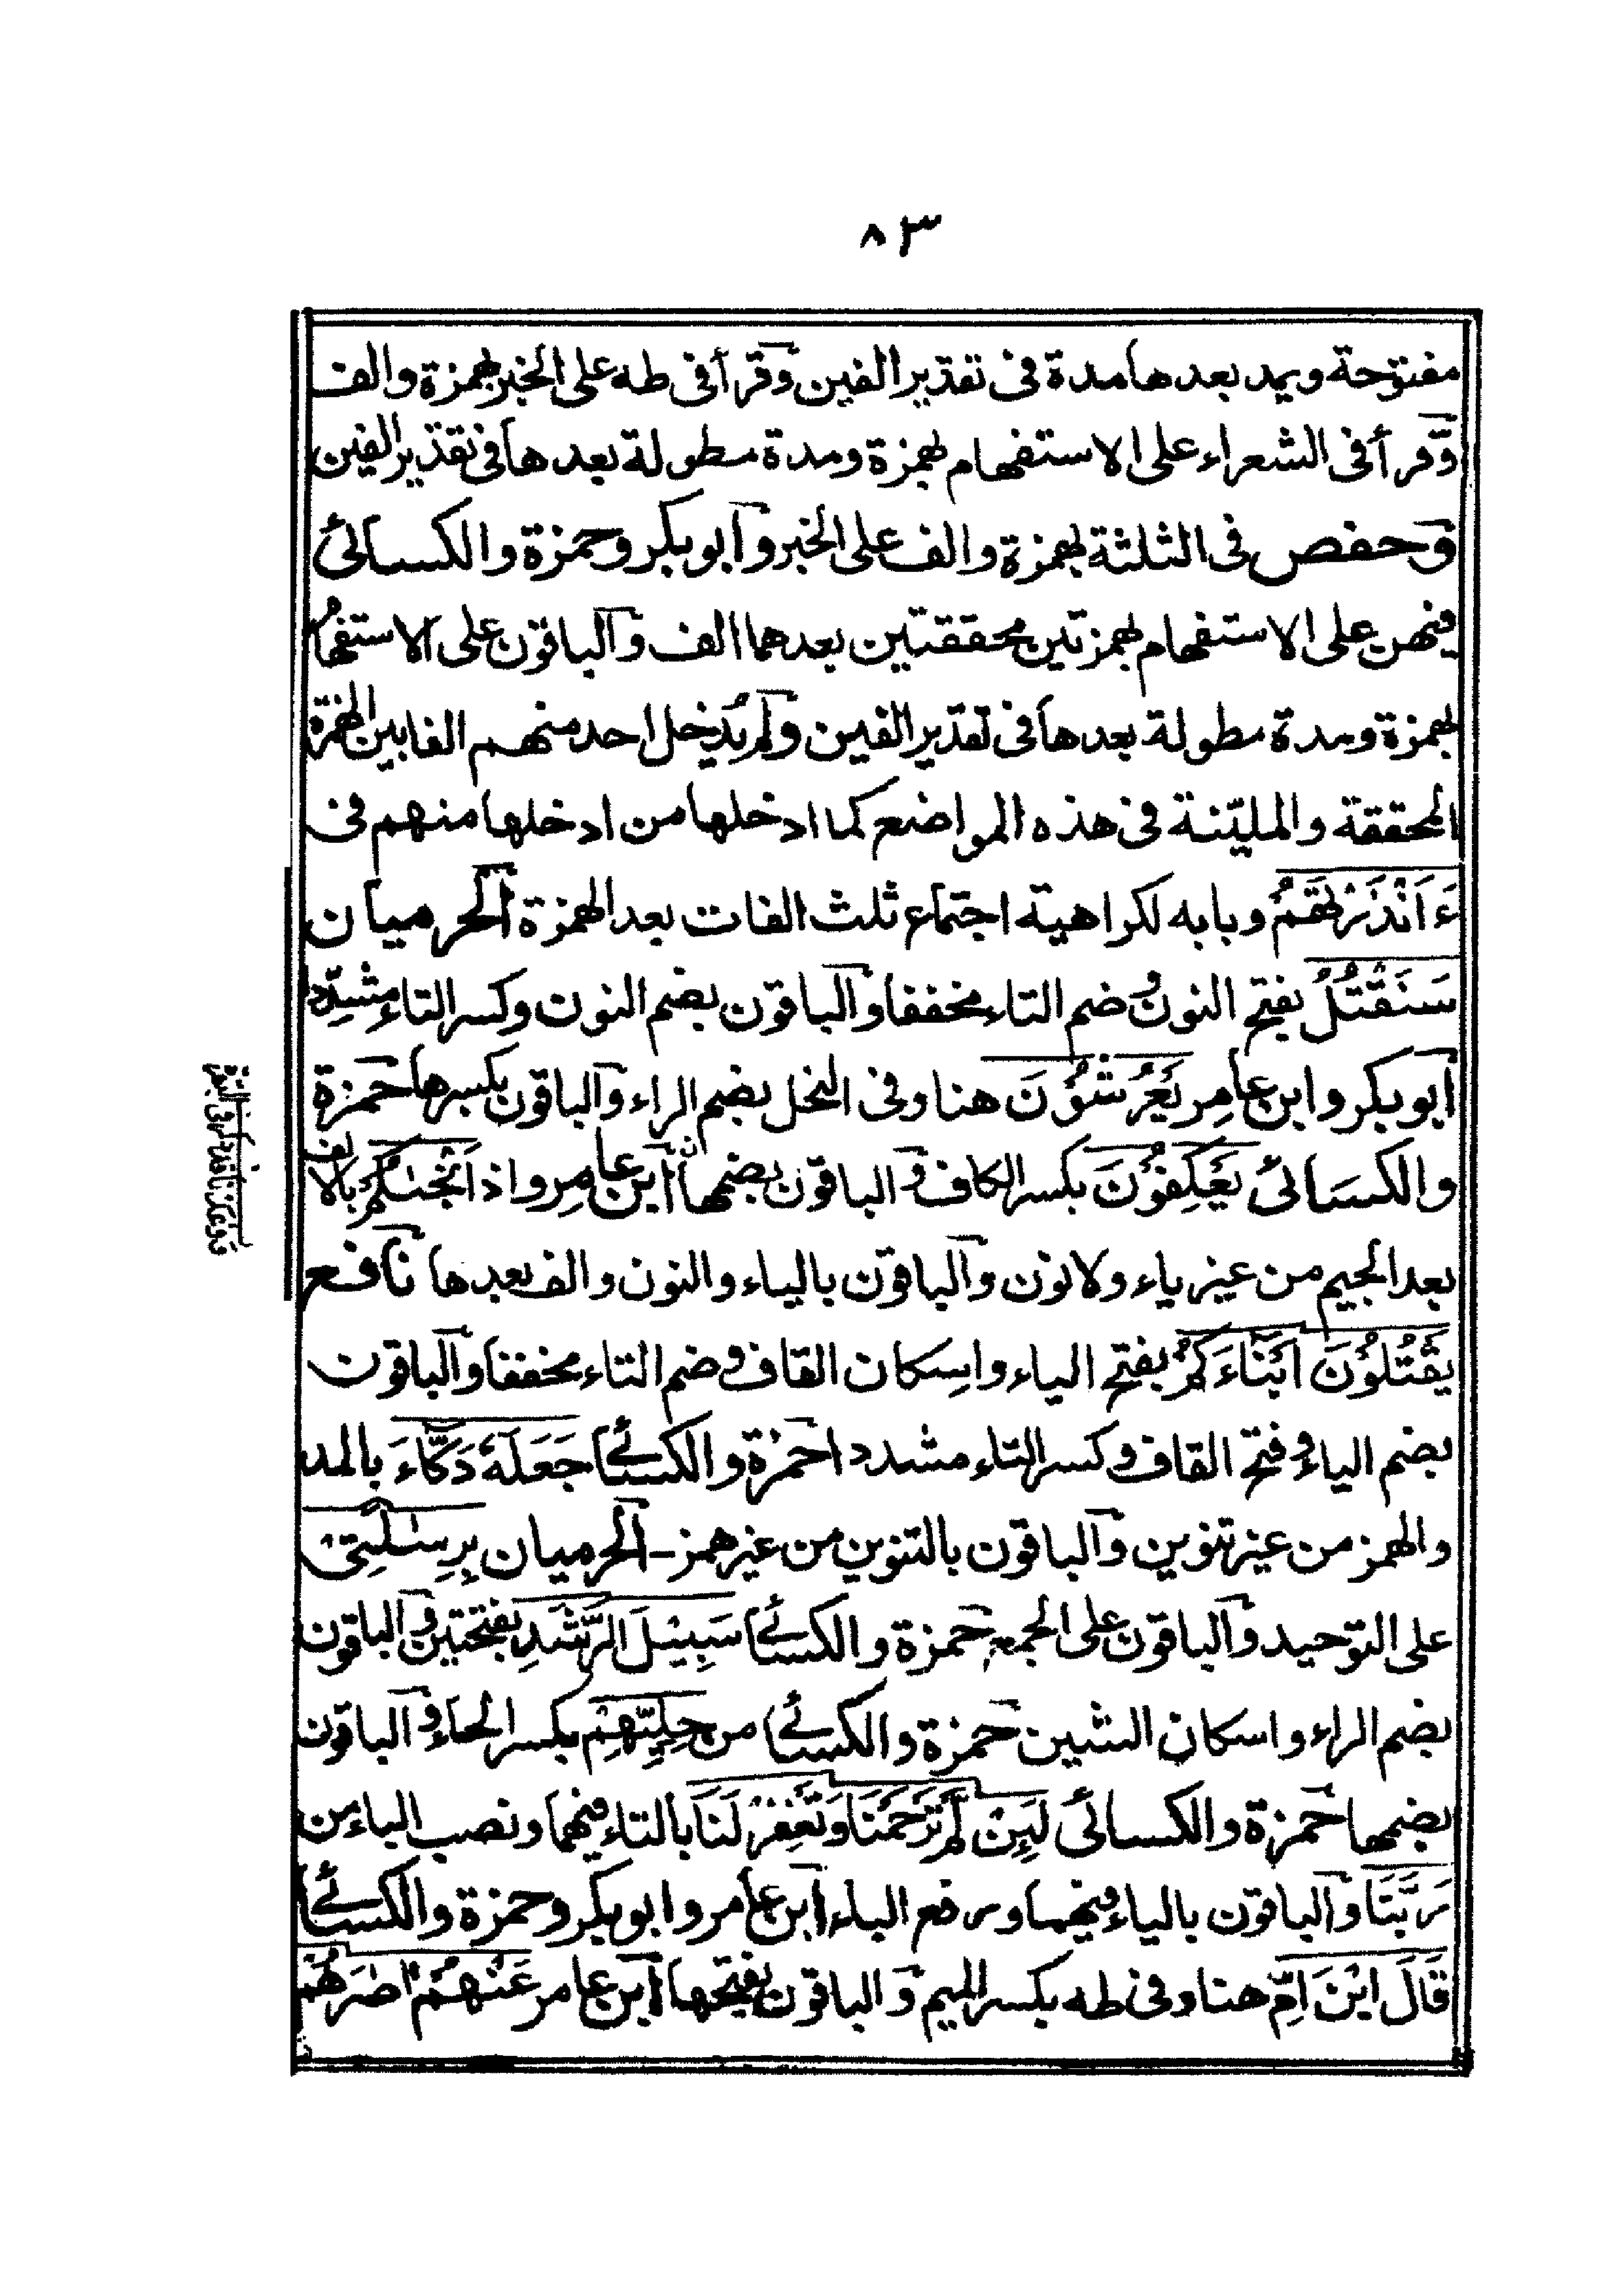 ٨٣
مفتوحة ويمد بعدها مدة فى تقدير الفين وقرأ فى طه على الخبر بهمزة والف
وقرأ فى الشعراء على الاستفهام بهمزة ومدة مطولة بعدها فى تقدير الفين
وحفص فى الثلثة بهمزة والف على الخبر وابو بكر وحمزة والكسائى
فيهن على الاستفهام بهمزتين محققتين بعدهما الف والباقون على الاستفهام
بهمزة ومدة مطولة بعدها فى تقدير الفين ولم يدخل احد منهم الفا بين الهمزة
المحققة والمليّنة فى هذه المواضع كما ادخلها من ادخلها منهم فى
ءَاَنْذَرْتَهُمْ وبابه لكراهية اجتماع ثلث الفات بعد الهمزة الحرميان
سَنَقْتُلُ بفتح النون وضم التاء مخففا والباقون بضم النون وكسر التاء مشدِّدا
ابو بكر وابن عامر يَعْرُشُوْنَ هنا وفى النحل بضم الراء والباقون بكسرها حمزة
والكسائى يَعْكِفُوْنَ بكسر الكاف والباقون بضمها ابن عامر واذ اَنْجٰىكُمْ بالالف
بعد الجيم من غير ياء ولا نون والباقون بالياء والنون والف بعدها نافع
يَقْتُلُوْنَ اَبْنَاءَكُمْ بفتح الياء واسكان القاف وضم التاء مخففا والباقون
بضم الياء وفتح القاف وكسر التاء مشددا حمزة والكسائى جَعَلَهٗ دَكَّاءَ بالمد
والهمز من غير تنوين والباقون بالتنوين من غير همز - الحرميان بِرِسٰلَتِىْ
على التوحيد والباقون على الجمع حمزة والكسائى سَبِيْلَ الرَّشَدِ بفتحتين والباقون
بضم الراء واسكان الشين حمزة والكسائى من حِلِيِّهِمْ بكسر الحاء والباقون
بضمها حمزة والكسائى لَئِنْ لَّمْ تَرْحَمْنَا وَتَغْفِرْ لَنَا بالتاء فيهما ونصب الباء من
رَبَّنَا والباقون بالياء فيهما ورفع الباء ابن عامر وابو بكر وحمزة والكسائى
قَالَ ابْنَ اُمِّ هنا وفى طه بكسر الميم والباقون بفتحها ابن عامر عَنْهُمْ اٰصَرَهُمْ